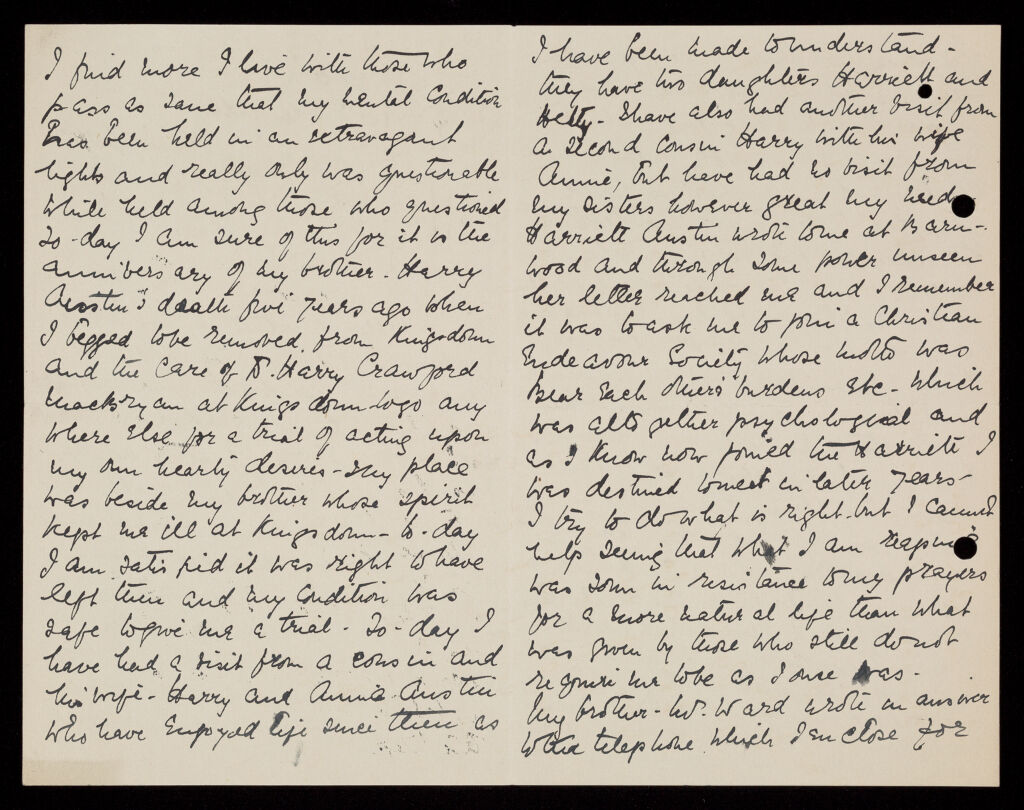 I find more I live with those who
pass as sane that my mental condition
has been held in an extravagant
light and really only was questionable
while held among those who questioned
To-day I am sure of this for it is the
anniversary of my brother - Harry
Austin's death five years ago when
I begged to be removed from Kingsdown
and the care of Dr. Harry Crawford
MacBryan at Kingsdown to go any
where else for a trial of acting upon
my own hearty desires - My place
was beside my brother whose spirit
kept me ill at Kingsdown - to-day
I am satisfied it was right to have
left them and my condition was
safe to give me a trial - To-day I
have had a visit from a cousin and
his wife - Harry and Annie Austin
who have enjoyed life since then as
I have been made to understand -
they have two daughters Harriett and
Hetty - I have also had another visit from
a second cousin Harry with his wife
Annie, but have had no visit from
my sisters however great my need
Harriett Austin wrote to me at Barn-
wood and through some power unseen
her letter reached me and I remember
it was to ask me to join a Christian
Endeavour Society whose motto was
Bear each others' burdens etc - which
was altogether psychological and
as I know now joined the Harriett I
was destined to meet in later years -
I try to do what is right but I cannot
help seeing that what I am reaping
was sown in resistance to my prayers
for a more natural life than what
was given by those who still do not
require me to be as I once was -
My brother - W. Ward wrote in answer
to the telephone which I enclose for